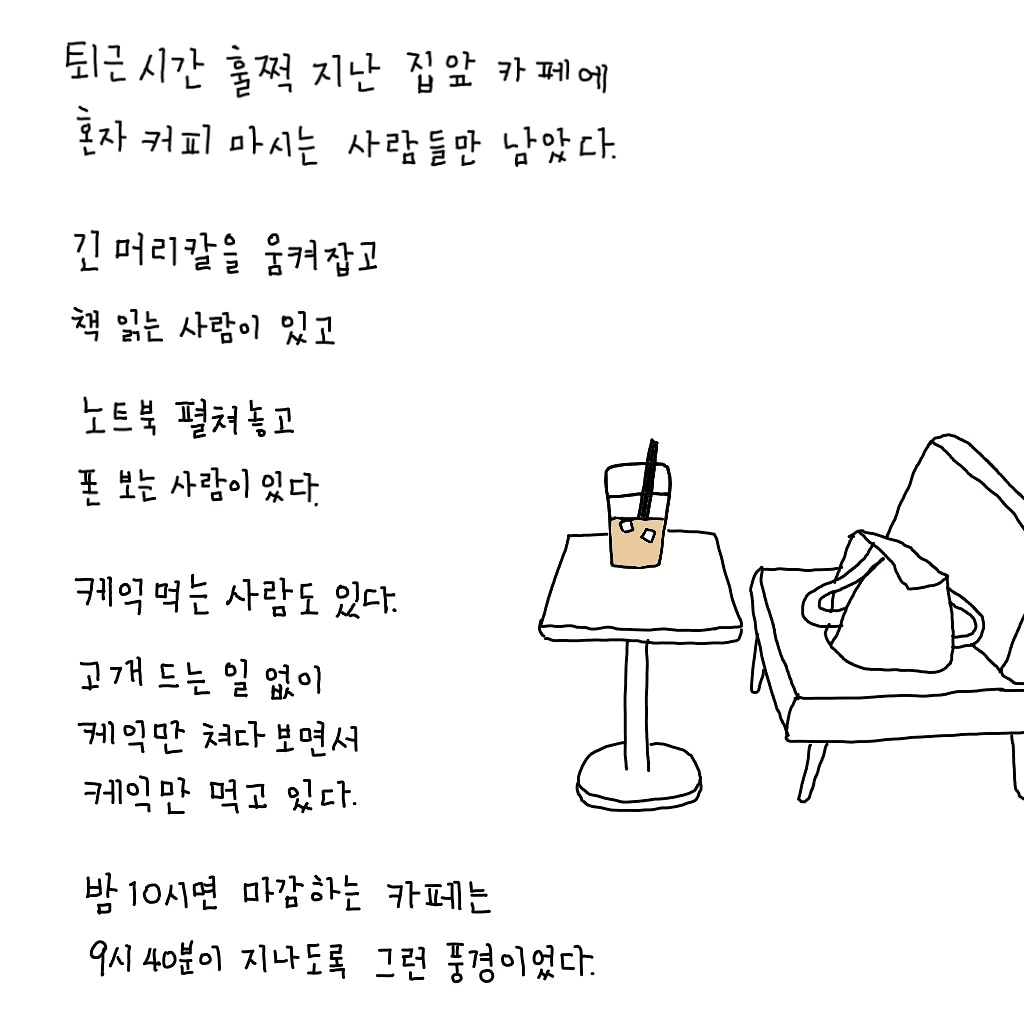 퇴근 시간 훌쩍 지난 집앞 카페에
혼자 커피 마시는 사람들만 남았다.
긴 머리칼을 움켜잡고
책 읽는 사람이 있고
노트북 펼쳐놓고
폰 보는 사람이 있다.
케익 먹는 사람도 있다.
고개 드는 일 없이
케익만 쳐다 보면서
케익만 먹고 있다.
밤 10시면 마감하는 카페는
9시 40분이 지나도록 그런 풍경이었다.